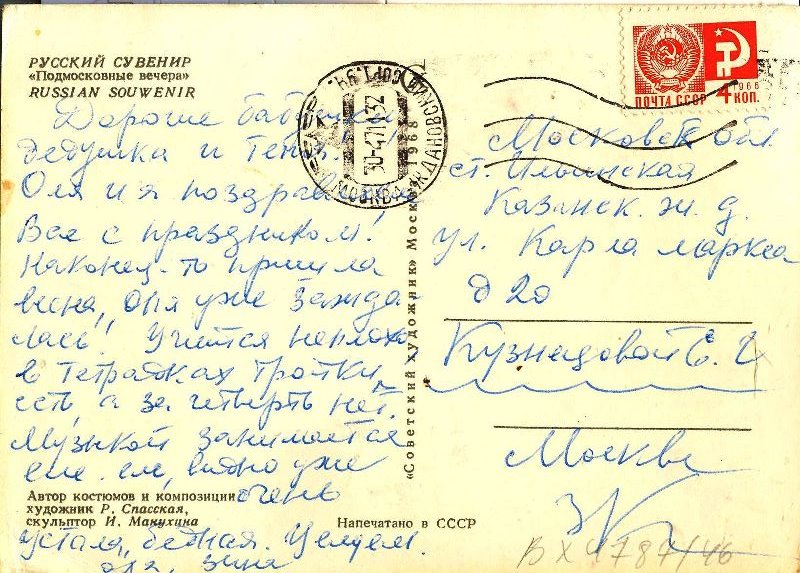 РУССКИЙ СУВЕНИР
«Подмосковные вечера»
RUSSIAN SOUWENIR
Дорогие бабушка
дедушка и Тетя!
Оля и я поздравляем
Вас с праздником!
Наконец-то пришла
весна, Оля уже зажда-
лась! Учится неплохо
в тетрадках тройки
есть, а за четверть нет.
Музыкой занимается
еле-еле, видно уже
очень
устала, бедная. Целуем.
Оля, Зина
Автор костюмов и композиции
художник Р. Спасская,
скульптор И. Манухина
Напечатано в СССР
«Советский художник» Москва 1968
МОСКВА ЖДАНОВСКИЙ
30-4 71
ПОЧТА СССР
1966
4 КОП.
Московск обл
ст. Ильинская
Казанск. ж. д.
ул. Карла Маркса
д 20
Кузнецовой Е.
Москва
ВХ 4787/46